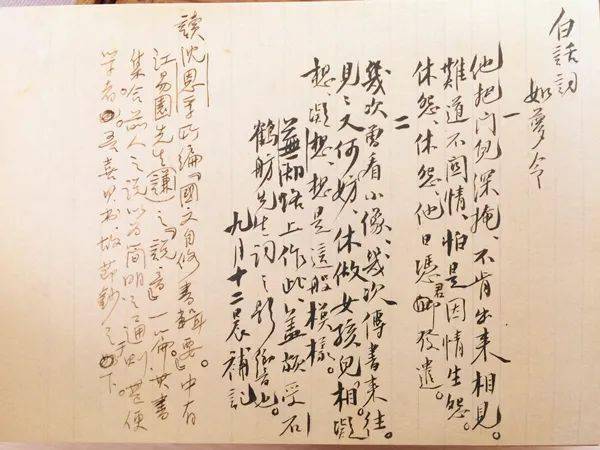 白話詞
如夢令
一
他把门兒深掩、不肯出来相見。
難道不関情、怕是因情生怨。
休怨休怨、他日憑君發遣。
二
幾次曾看小像、幾次傳書来往。
見ミ又何妨、休做女孩兒相。凝
想、凝想、想是這般模樣。
蕪湖路上作此、蓋頗受石
鶴舫先生詞之影響也。
九月十二晨補記
讀沈恩孚所編『國文自修書輯要』中有
江易園先生(謙)之『說音』一篇。其書
集合前人之說以為簡明之通則、甚便
学者。故節鈔之于下。